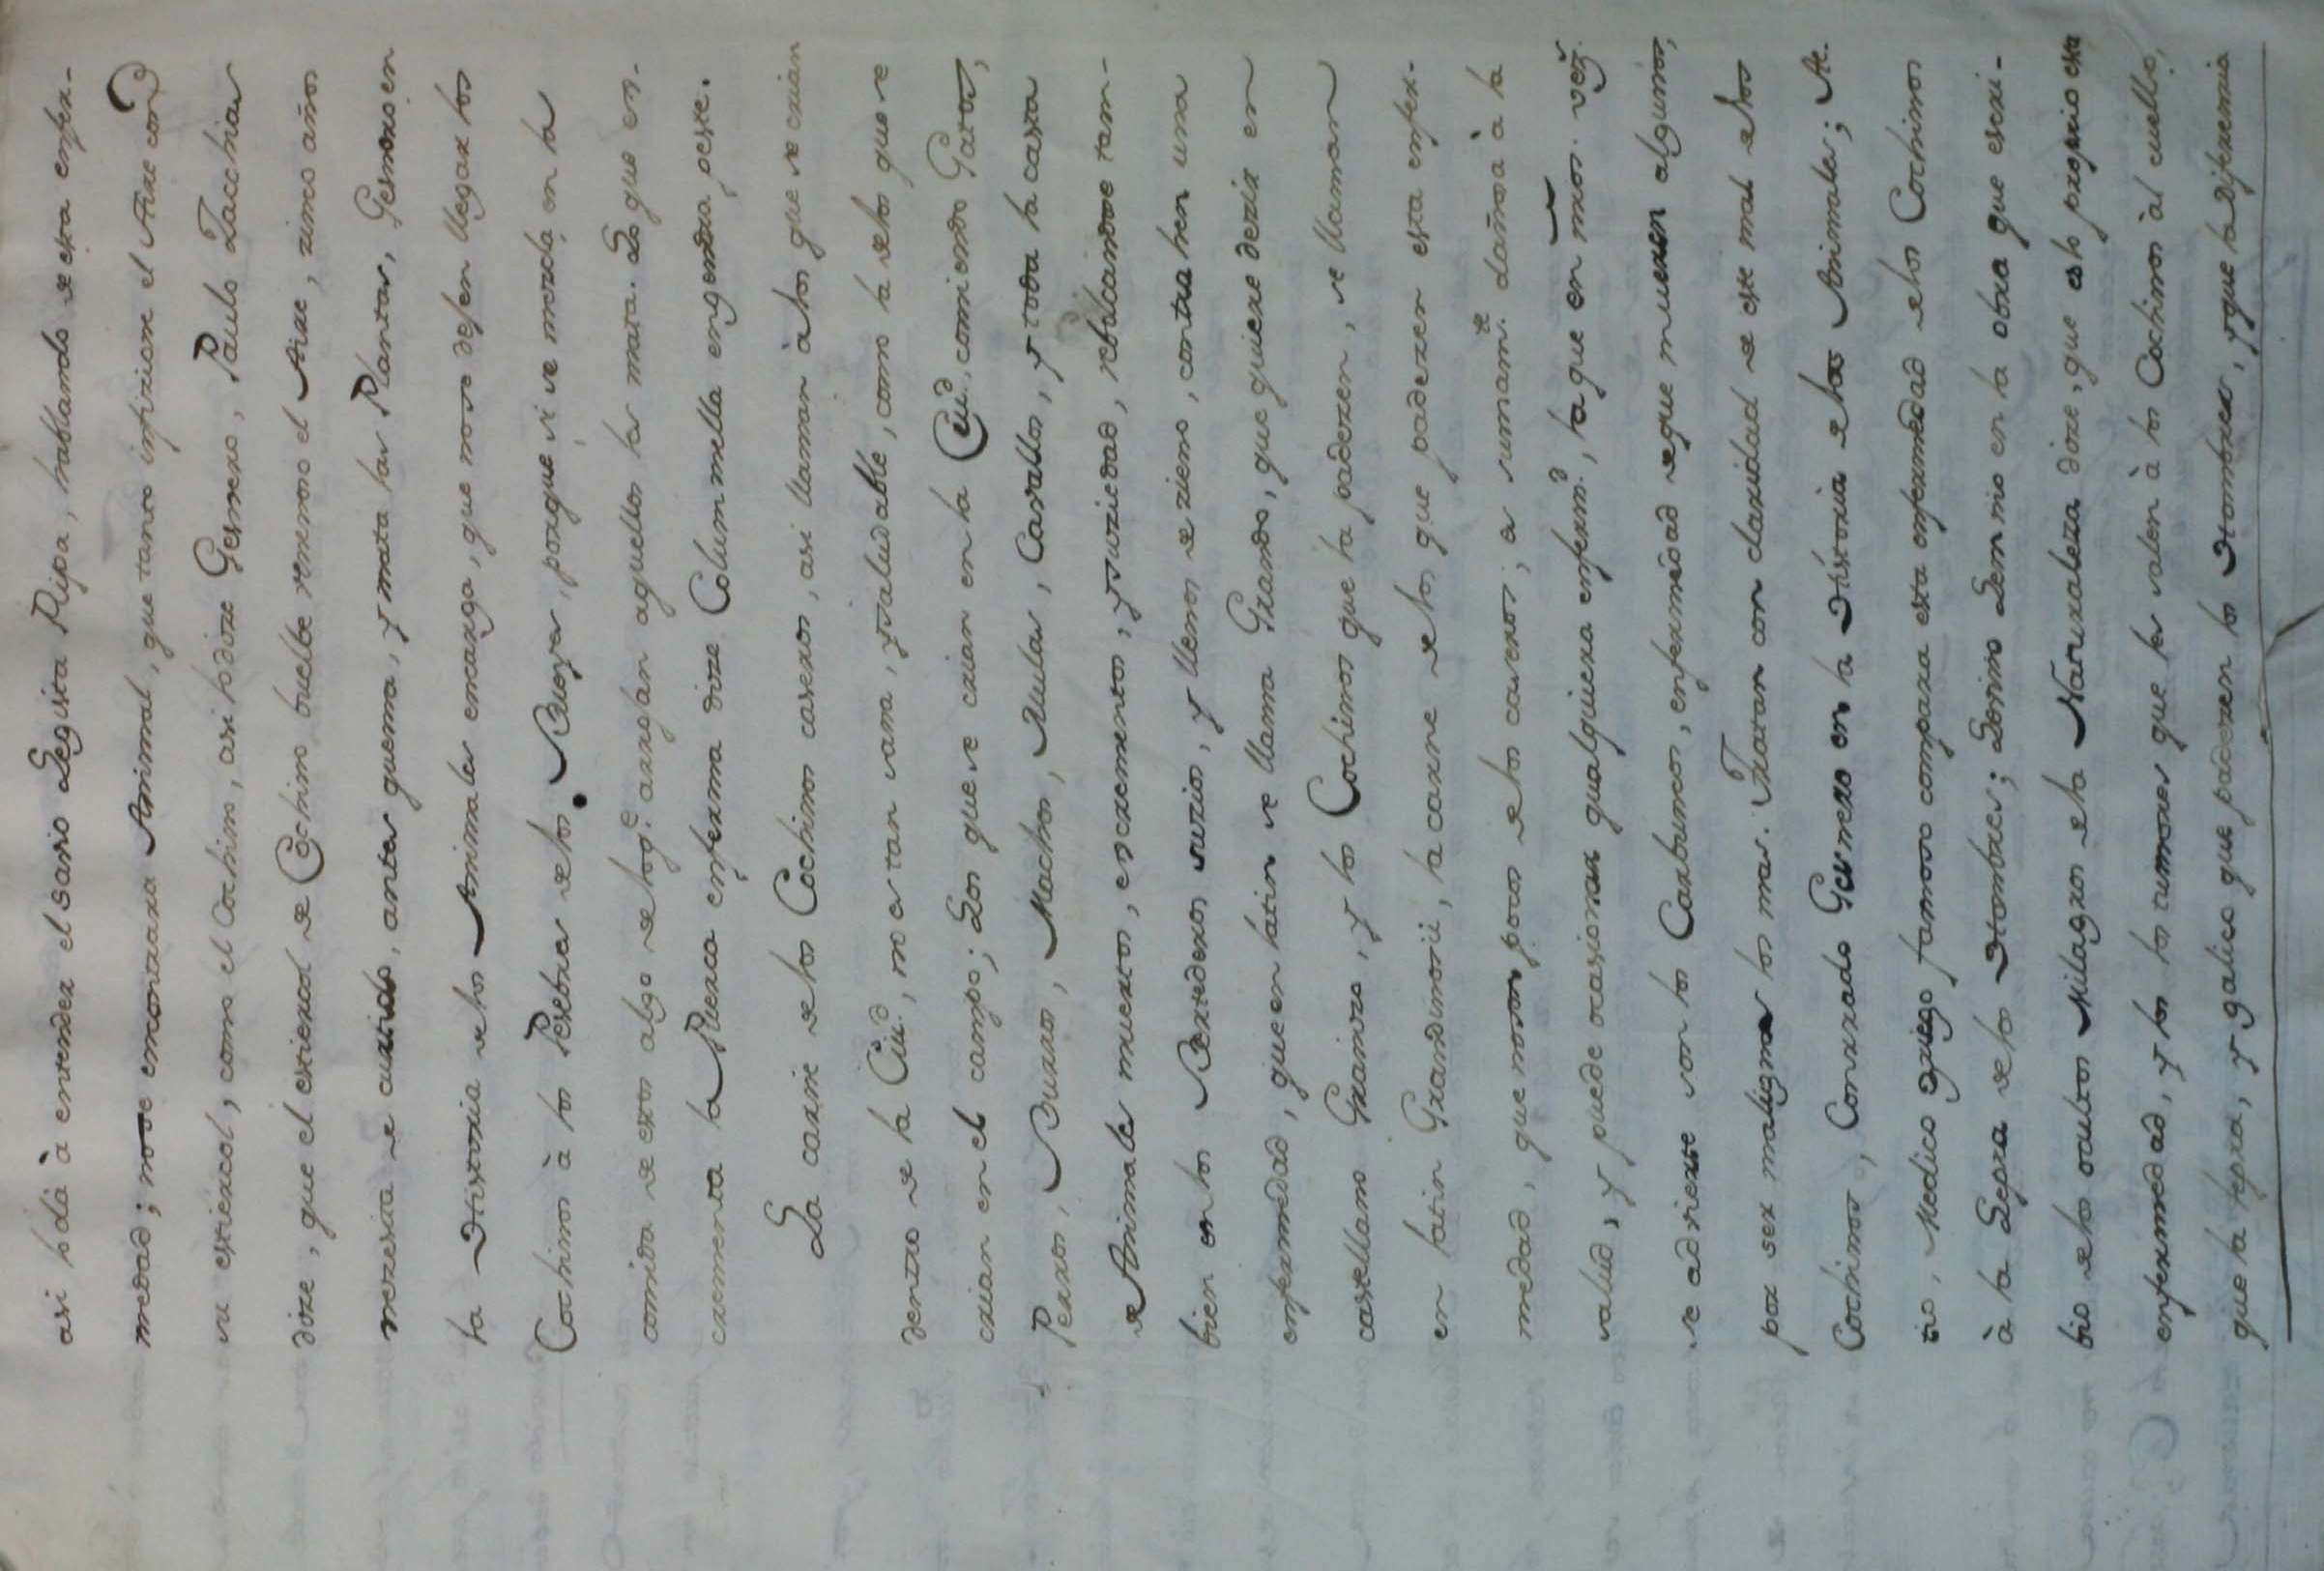 asi lo dà à entender el sabio Legista Ripa, hablando de esta enfer-
medad; no se encontrara Animal, que tanto infizione el Aire con
su estiercol, como el Cochino, asi lo dize Gesnero, Paulo Zacchias
dize, que el estiercol de Cochino buelbe venenoso el Aire, zinco años
nezesita de curtido, antes quema, y mata las Plantas, Gesnero en
la Historia de los Animales encarga, que no se dejen llegar los
Cochinos à los Pesebres de los Bueyes, porque si se mezcla en la
comida de estos algo de lo q.e arrojan aquellos les mata. Lo que es-
crementa la Puerca enferma dize Columnella engendra peste.
La carne de los Cochinos caseros, asi llaman à los que se crian
dentro de la Ciu.d, no es tan sana, y saludable, como la de los que se
crian en el campo; Los que se crian en la Ciu.d, comiendo Gatos,
Perros, Burros, Machos, Mulas, Cavallos, y toda la casta
de Animales muertos, escrementos, y suziedad, rebolcandose tam-
bien en los Bertederos suzios, y llenos de zieno, contrahen una
enfermedad, que en latin se llama Grando, que quiere dezir en
castellano Granizo, y los Cochinos que la padezen, se llaman
en latin Grandinosii, la carne de los que padezen esta enfer-
medad, que no son pocos de los caseros, es sumam.te dañosa à la
salud, y puede ocasionar qualquiera enferm.d, la que en mos. vez.
se advierte son los Carbuncos, enfermedad de que mueren algunos,
por ser malignos los mas. Tratan con claridad de este mal de los
Cochinos, Conrado Gesnero en la Historia de los Animales; Ae-
zio, Medico griego famoso compara esta enfermedad de los Cochinos
à la Lepra de los Hombres; Levino Lemnio en la obra que escri-
bio de los ocultos Milagros de la Naturaleza dize, que es lo proprio esta
enfermedad, y los tumores que les salen à los Cochinos àl cuello,
que la lepra, y galico que padezen los Hombres, y que la diferencia